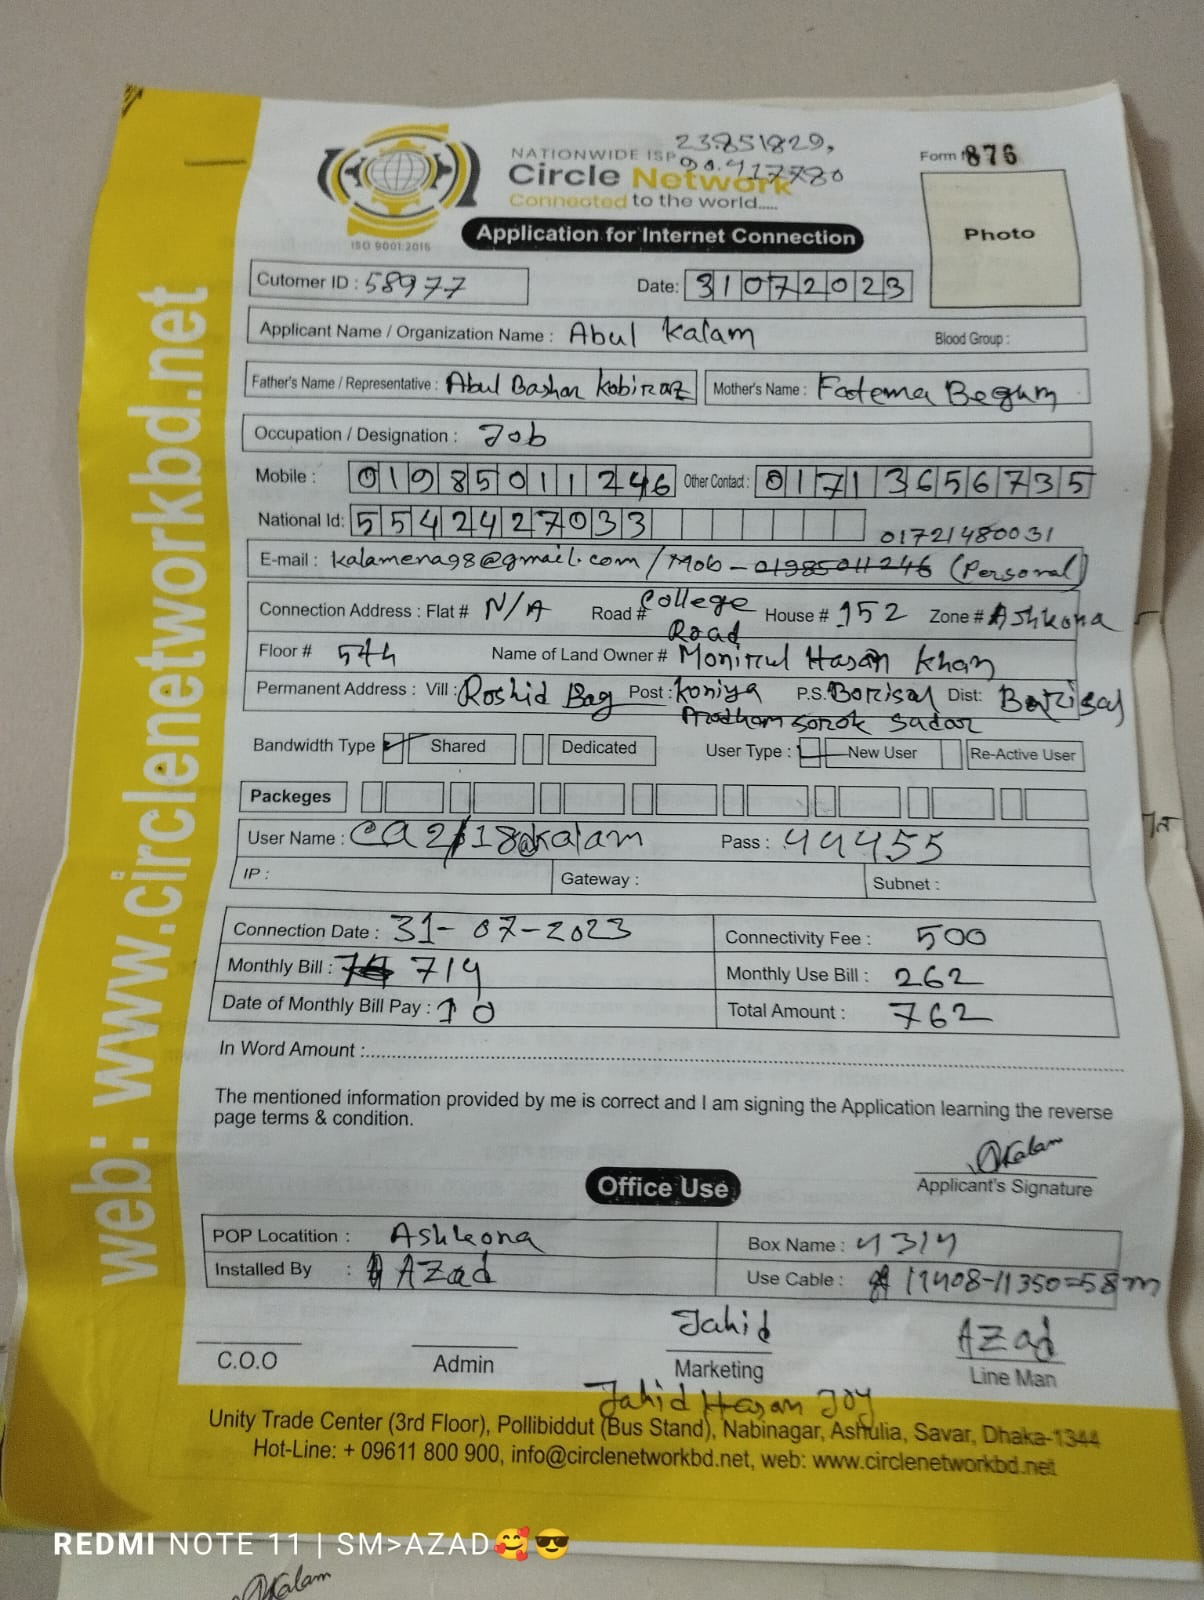 23.851829,
90.417780
NATIONWIDE ISP
Circle Network
Connected to the world.....
ISO 9001:2015
Form 876
Photo
Application for Internet Connection
Cutomer ID : 58977
Date: 31072023
Applicant Name / Organization Name : Abul Kalam Blood Group :
Father's Name / Representative : Abul Bashar Kobiraz Mother's Name : Fatema Begum
Occupation / Designation : Job
Mobile : 01985011246 Other Contact : 01713656735
National Id: 5542427033 01721480031
E-mail : kalamena98@gmail.com / Mob - 01985011246 (Personal)
Connection Address : Flat # N/A Road # College Road House # 152 Zone # Ashkona
Floor # 5th Name of Land Owner # Monirul Hasan Khan
Permanent Address : Vill : Roshid Bag Post : Koniya P.S. Borisal Dist: Borisal
Prodham Sorok Sadar
Bandwidth Type Shared Dedicated User Type : New User Re-Active User
Packeges
User Name : ca218@kalam Pass : 44455
IP : Gateway : Subnet :
Connection Date : 31-07-2023 Connectivity Fee : 500
Monthly Bill : 714 Monthly Use Bill : 262
Date of Monthly Bill Pay : 10 Total Amount : 762
In Word Amount :
The mentioned information provided by me is correct and I am signing the Application learning the reverse
page terms & condition.
Kalam
Applicant's Signature
Office Use
POP Locatition : Ashkona Box Name : 4314
Installed By : Azad Use Cable : 11408-11350=58m
Jahid AZad
C.O.O Admin Marketing Line Man
Jahid Hasan Joy
Unity Trade Center (3rd Floor), Pollibiddut (Bus Stand), Nabinagar, Ashulia, Savar, Dhaka-1344
Hot-Line: + 09611 800 900, info@circlenetworkbd.net, web: www.circlenetworkbd.net
web: www.circlenetworkbd.net
REDMI NOTE 11 | SM>AZAD🥰😎
Kalam